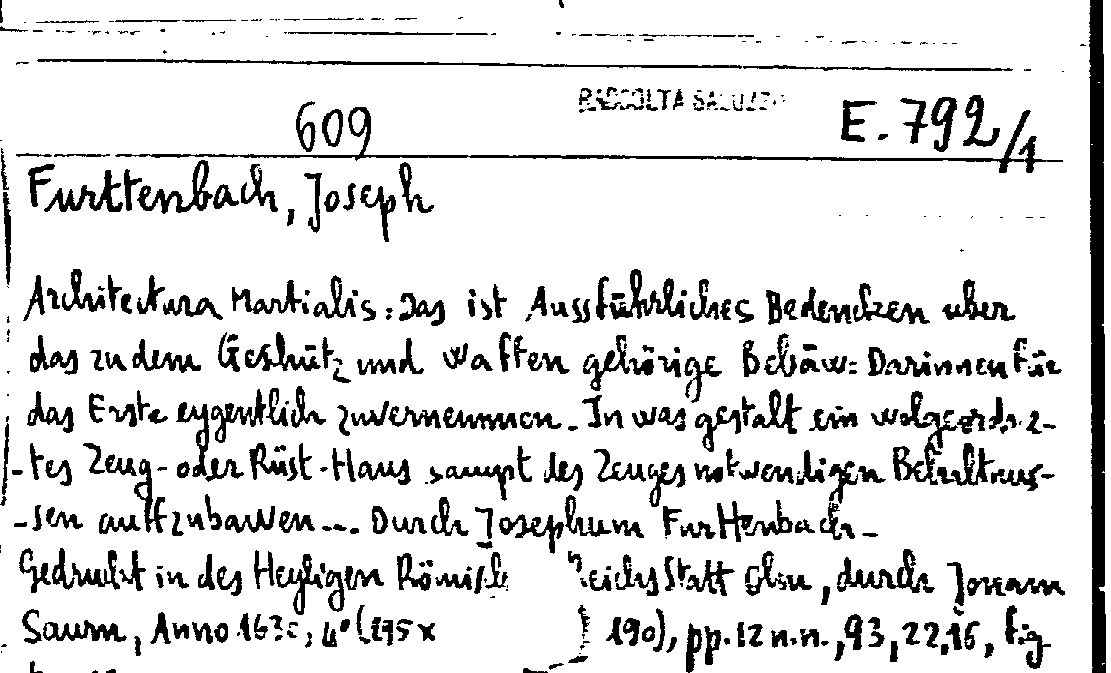 609 RACCOLTA SALUZZO E.792/1
Furttenbach, Joseph
Architectura Martialis: Das ist Aussführliches Bedencken uber
das zu dem Geshütz und waffen gehörige Bebäw: Darinnen für
das Erste eygentlich zuvernemmen. In was gestalt ein
-tes Zeug- oder Rüst-Haus sampt des Zeuges notwendigen
-sen auffzubawen... Durch Josephum Furttenbach-
Gedruckt in des Heyligen durch Jonam
Saurn, Anno 4° 190), pp. 12 n.n., 93, 22, 16, fig